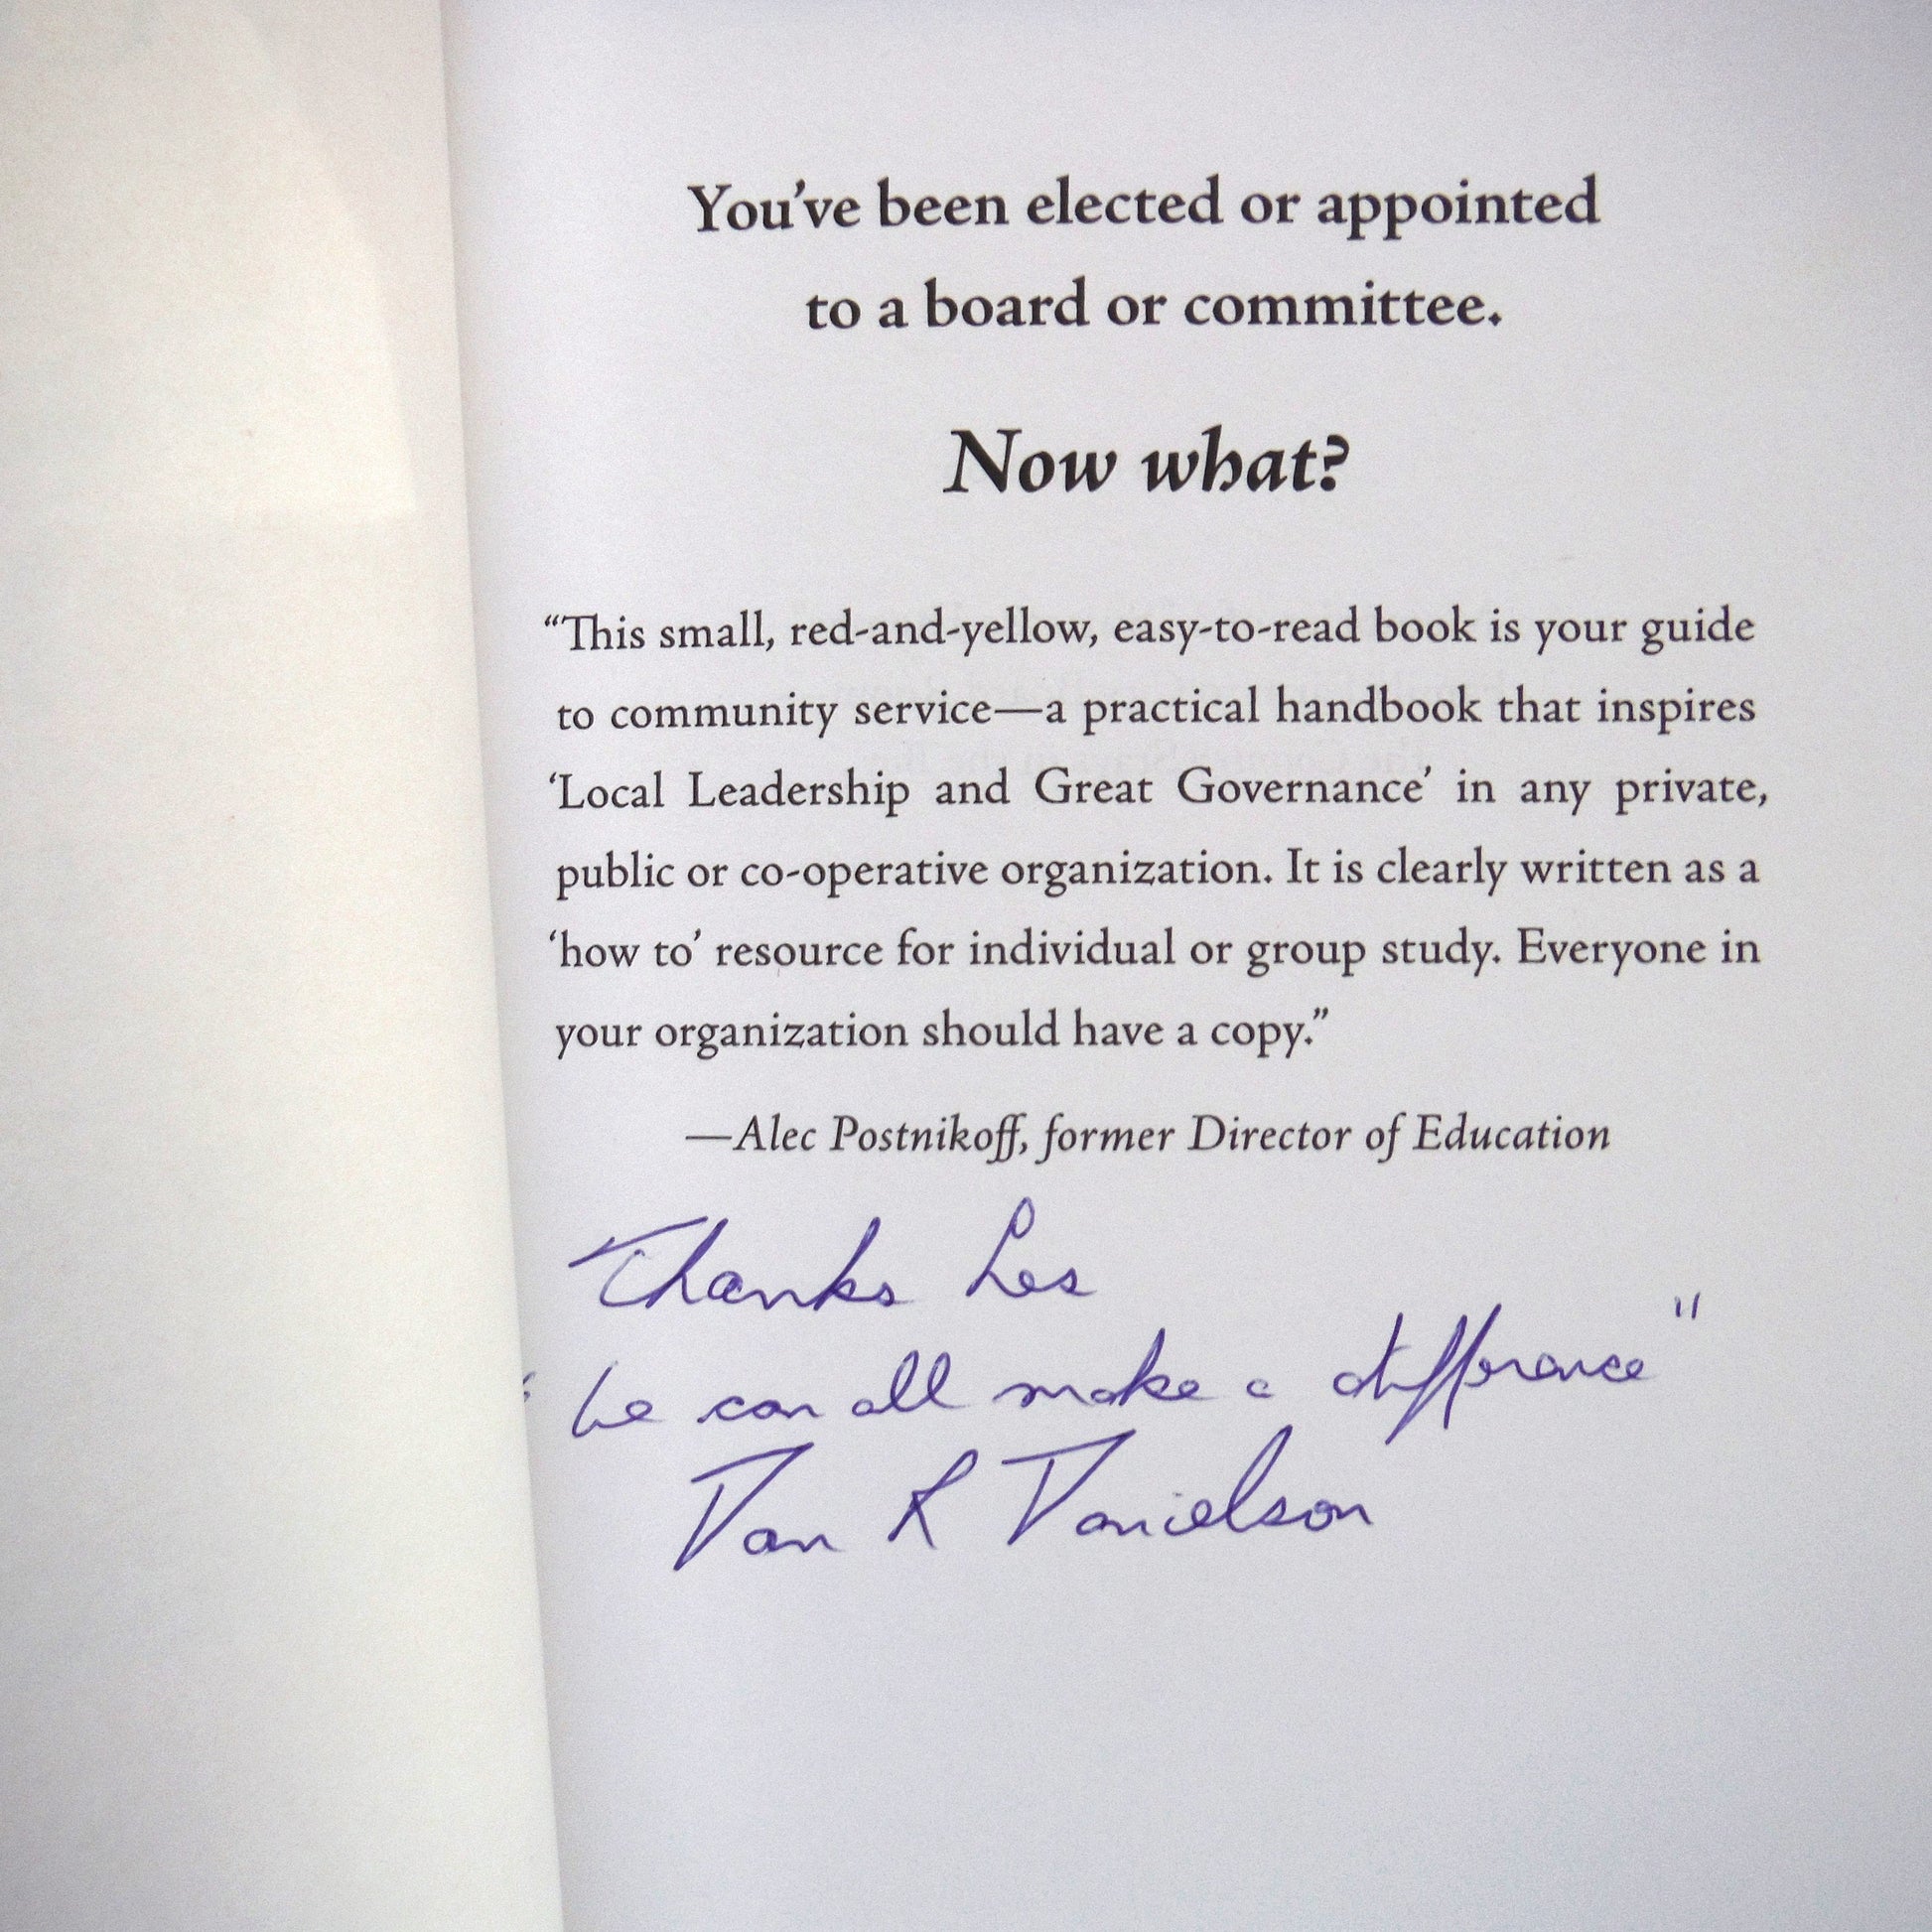 You've been elected or appointed
to a board or committee.
Now what?
“This small, red-and-yellow, easy-to-read book is your guide
to community service—a practical handbook that inspires
‘Local Leadership and Great Governance’ in any private,
public or co-operative organization. It is clearly written as a
‘how to’ resource for individual or group study. Everyone in
your organization should have a copy.”
—Alec Postnikoff, former Director of Education
Thanks Les
"We can all make a difference"
Dan R Danielson